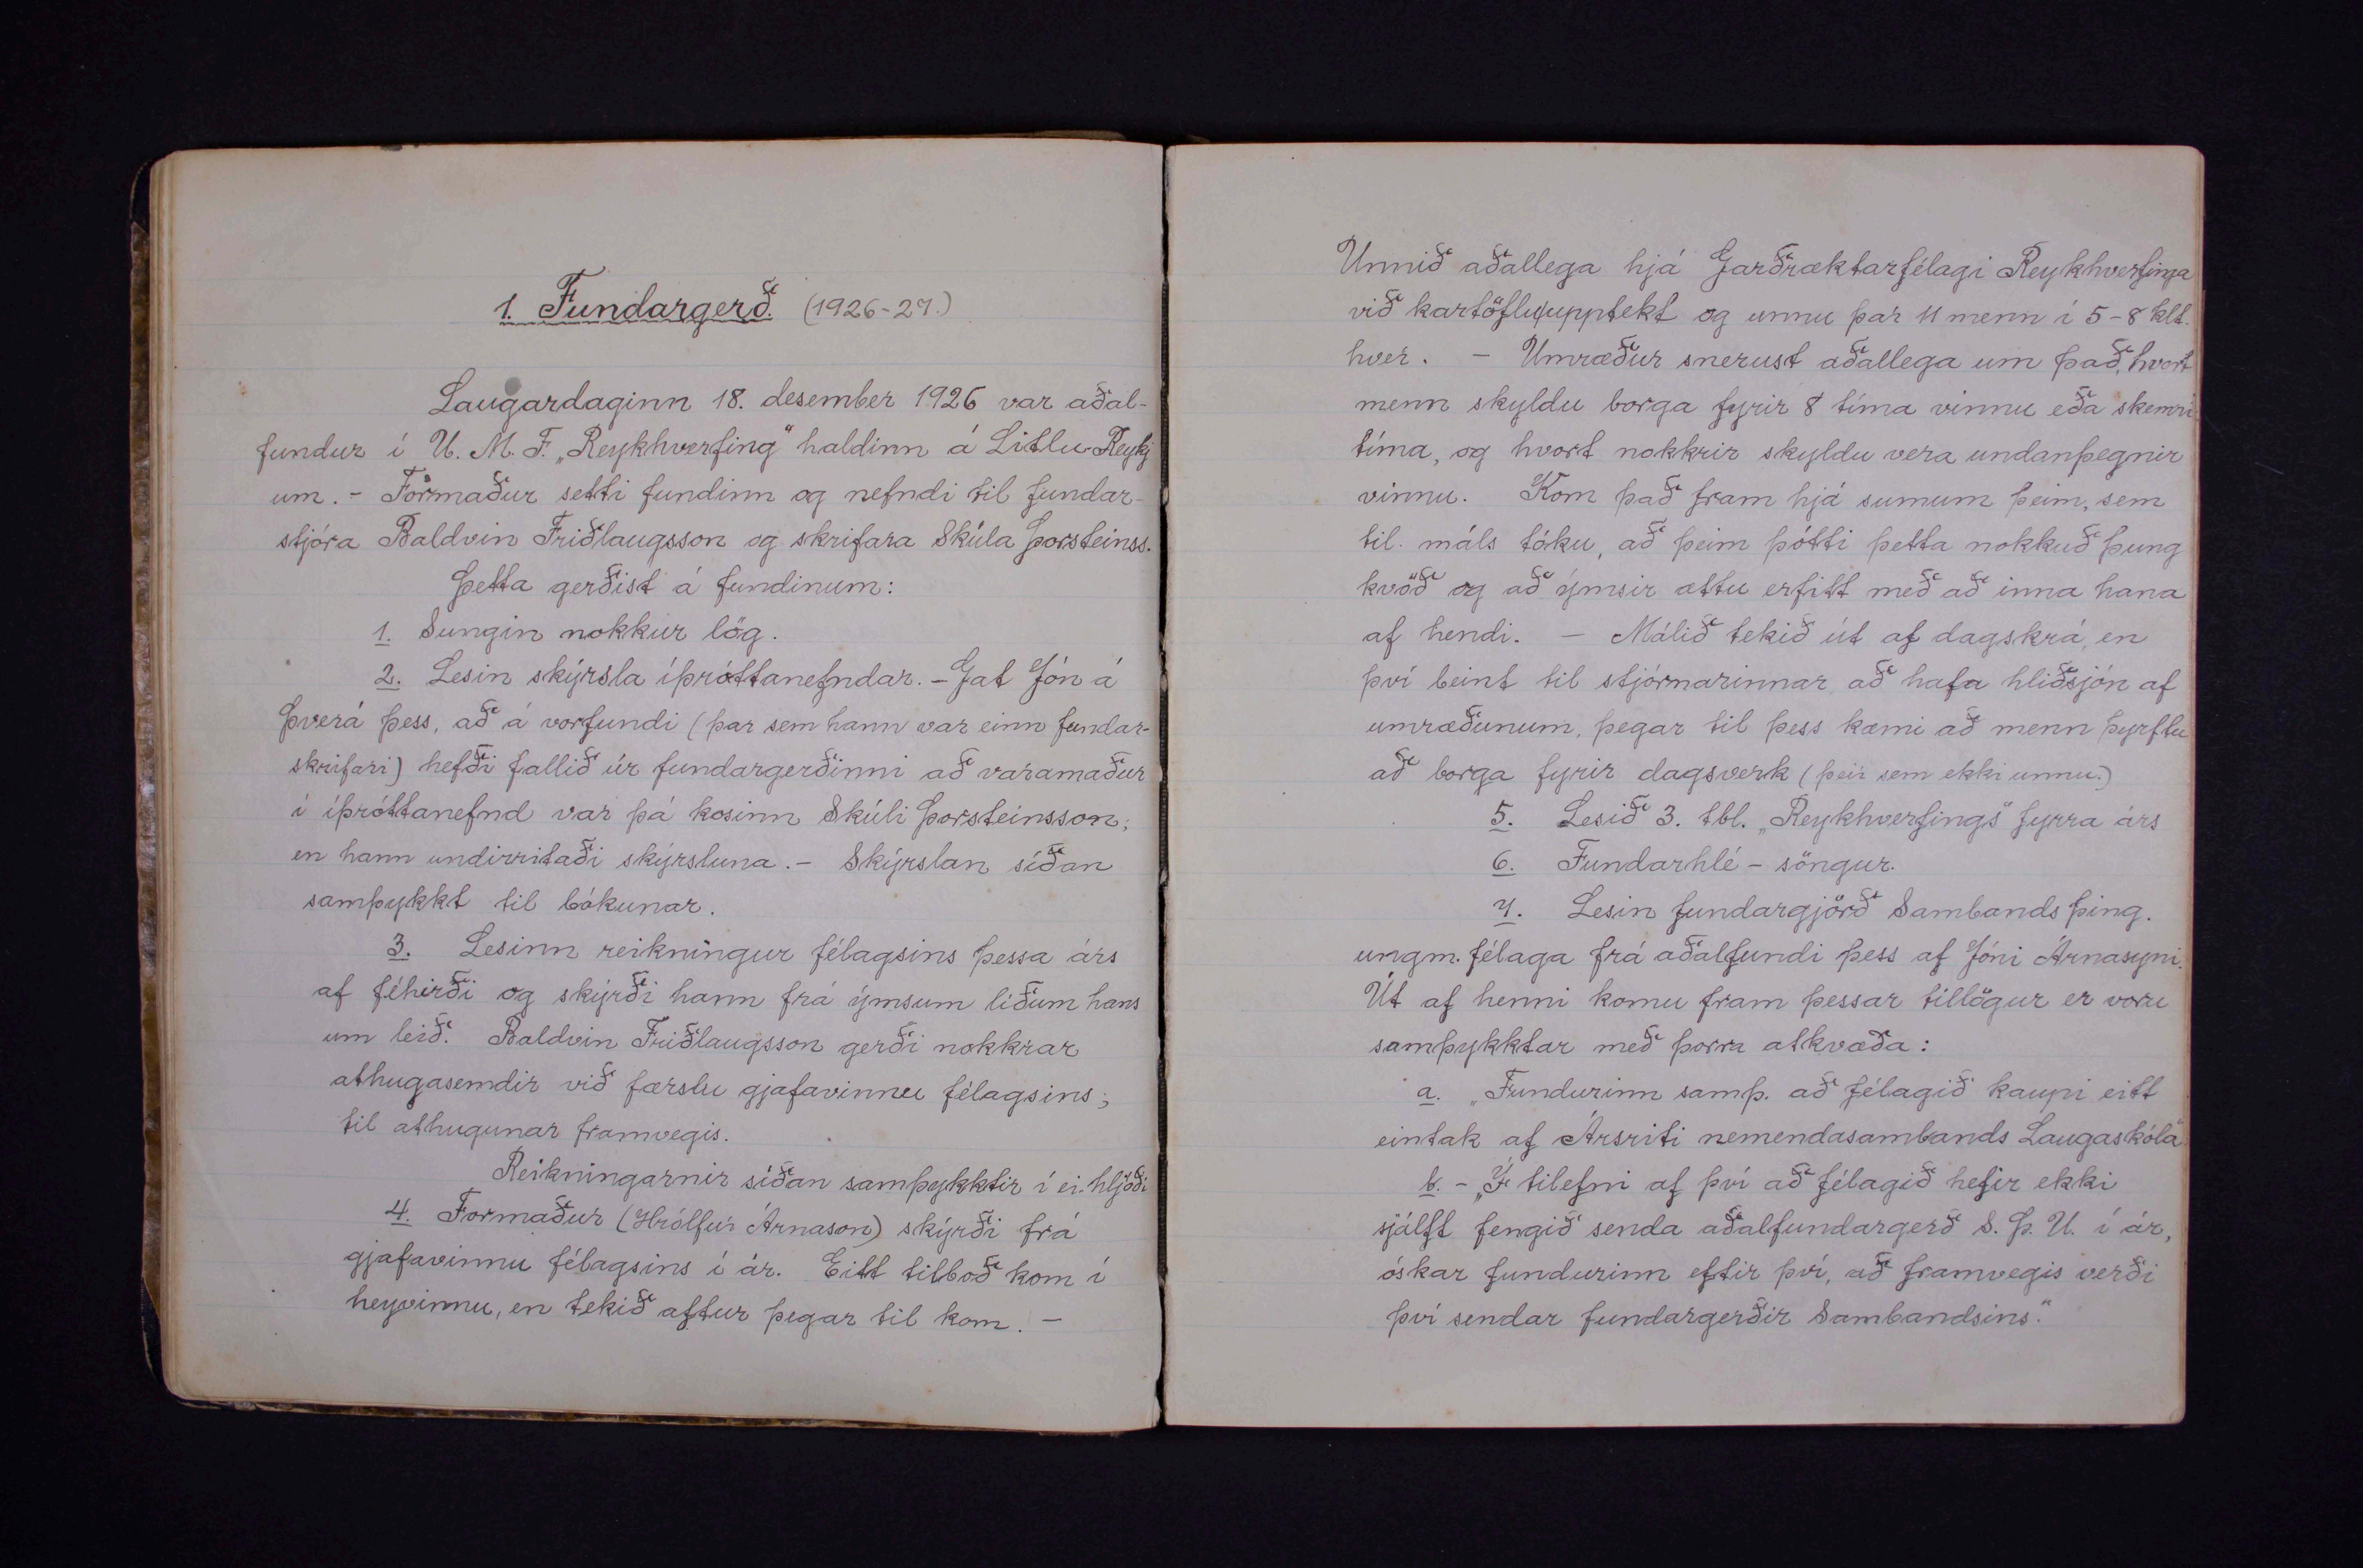 1. Fundargerð. (1926-27.)
Laugardaginn 18. desember 1926 var aðal-
fundur í U. M. F. „Reykhverfing" haldinn á Litlu-Reykj
um. - Formaður setti fundinn og nefndi til fundar-
stjóra Baldvin Friðlaugsson og skrifara Skúla Þorsteinss.
Þetta gerðist á fundinum:
1. Sungin nokkur lög.
2. Lesin skýrsla íþróttanefndar. - Gat Jón á
Þverá þess, að á vorfundi (þar sem hann var einn fundar-
skrifari) hefði fallið úr fundargerðinni að varamaður
í íþróttanefnd var þá kosinn Skúli Þorsteinsson;
en hann undirritaði skýrsluna. - Skýrslan síðan
samþykkt til bókunar.
3. Lesinn reikningur félagsins þessa árs
af féhirði og skýrði hann frá ýmsum liðum hans
um leið. Baldvin Friðlaugsson gerði nokkrar
athugasemdir við færslu gjafavinnu félagsins;
til athugunar framvegis.
Reikningarnir síðan samþykktir í ei. hljóði
4. Formaður (Hrólfur Árnason) skýrði frá
gjafavinnu félagsins í ár. Eitt tilboð kom í
heyvinnu, en tekið aftur þegar til kom. -
Unnið aðallega hjá Garðræktarfélagi Reykhverfinga
við kartöfluupptekt og unnu þar 11 menn í 5-8 klt.
hver. - Umræður snerust aðallega um það, hvort
menn skyldu borga fyrir 8 tíma vinnu eða skemri
tíma, og hvort nokkrir skyldu vera undanþegnir
vinnu. Kom það fram hjá sumum þeim, sem
til máls tóku, að þeim þótti þetta nokkuð þung
kvöð og að ýmsir ættu erfitt með að inna hana
af hendi. - Málið tekið út af dagskrá, en
því beint til stjórnarinnar að hafa hliðsjón af
umræðunum, þegar til þess kæmi að menn þyrftu
að borga fyrir dagsverk (þeir sem ekki unnu.)
5. Lesið 3. tbl. „Reykhverfings" fyrra árs
6. Fundarhlé - söngur.
7. Lesin fundargjörð Sambands þing.
ungm. félaga frá aðalfundi þess af Jóni Árnasyni.
Út af henni komu fram þessar tillögur er voru
samþykktar með þorra atkvæða:
a. „Fundurinn samþ. að félagið kaupi eitt
eintak af Ársriti nemendasambands Laugaskóla"
b. - „Í tilefni af því að félagið hefir ekki
sjálft fengið senda aðalfundargerð S. Þ. U. í ár,
óskar fundurinn eftir því, að framvegis verði
því sendar fundargerðir Sambandsins."